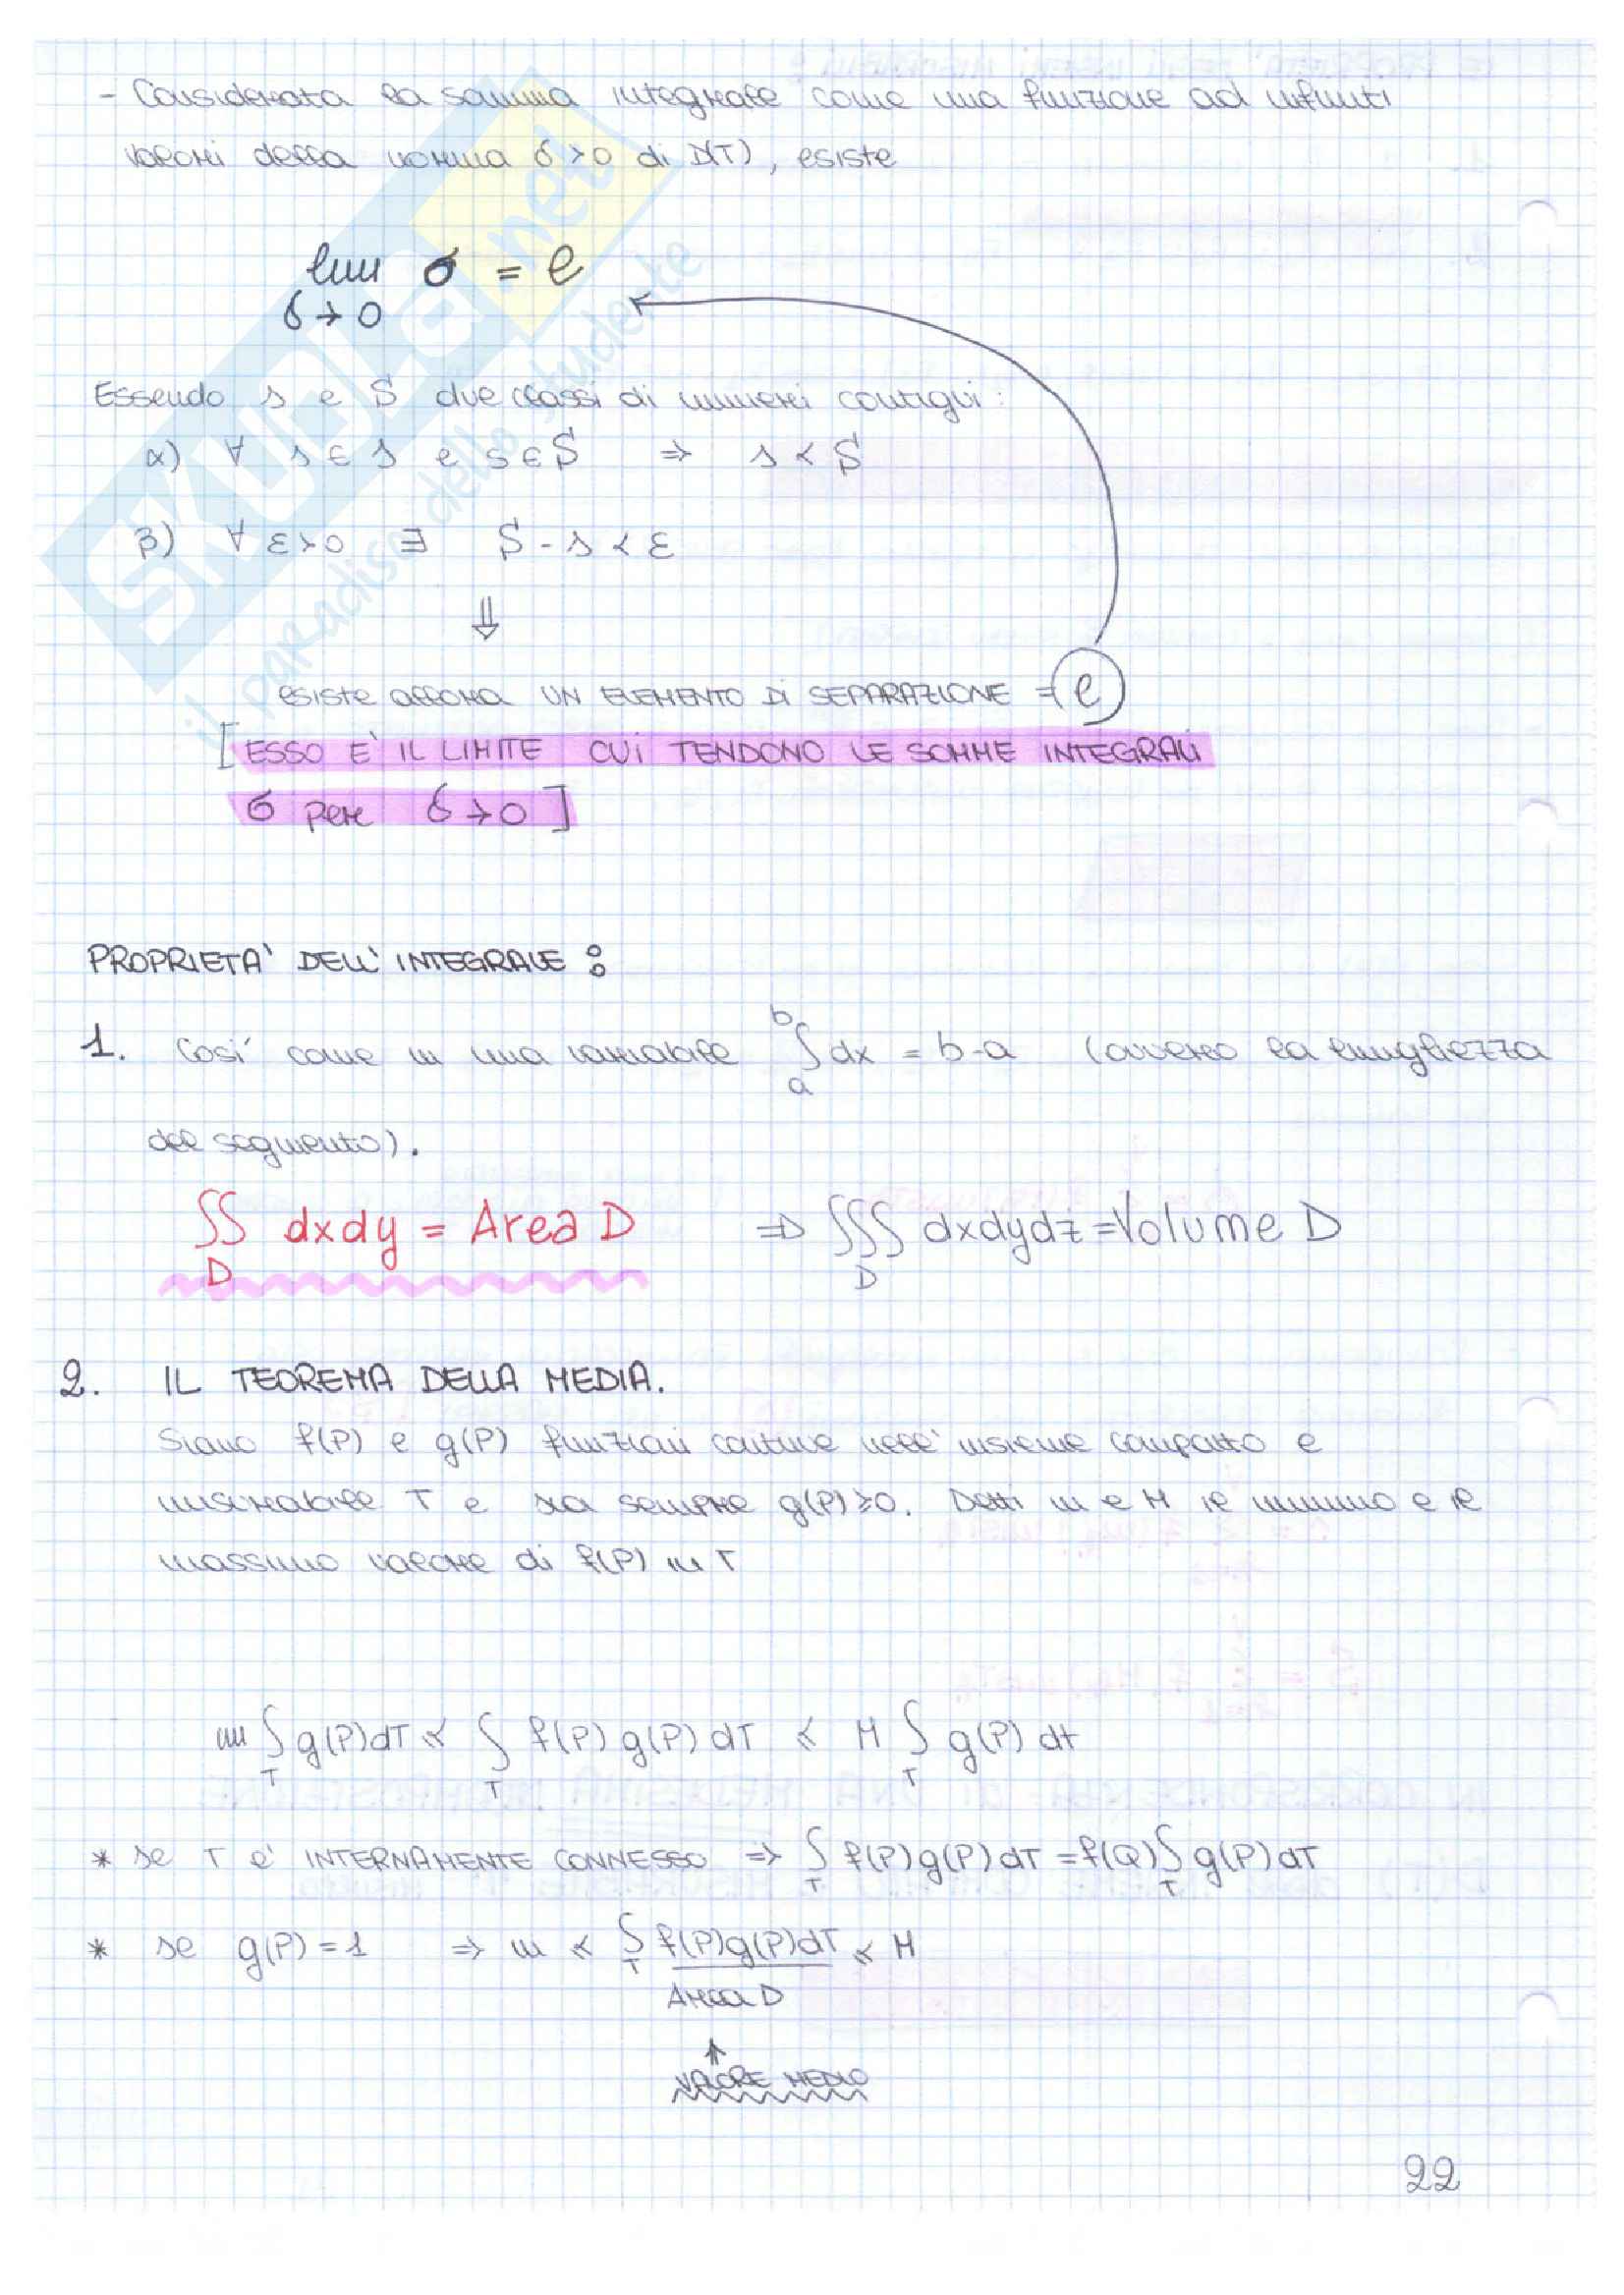 - Considerata la somma integrale come una funzione ad infiniti
valori della norma δ>0 di D(T), esiste
lim σ = l
δ→0
Essendo s e S due classi di numeri contigui:
α) ∀ s ∈ s e s ∈ S ⇒ s ≤ S
β) ∀ ε>0 ∃ S - s < ε
⇓
esiste allora UN ELEMENTO DI SEPARAZIONE = l
[ESSO E' IL LIMITE CUI TENDONO LE SOMME INTEGRALI
σ per δ→0]
PROPRIETA' DELL'INTEGRALE:
1. Così come in una variabile ∫ₐᵇ dx = b-a (ovvero la lunghezza
del segmento).
∬_D dxdy = Area D ⇒ ∭_D dxdydz = Volume D
2. IL TEOREMA DELLA MEDIA.
Siano f(P) e g(P) funzioni continue nell'insieme compatto e
misurabile T e sia sempre g(P)≥0. Detti m e M il minimo e il
massimo valore di f(P) in T
m ∫_T g(P)dT ≤ ∫_T f(P) g(P) dT ≤ M ∫_T g(P) dt
* se T e' INTERNAMENTE CONNESSO ⇒ ∫_T f(P)g(P)dT = f(Q)∫_T g(P)dT
* se g(P)=1 ⇒ m ≤ ∫_T f(P)g(P)dT ≤ M
Area D
↑
VALORE MEDIO
22
SKUOLA.net
il paradiso dello studente